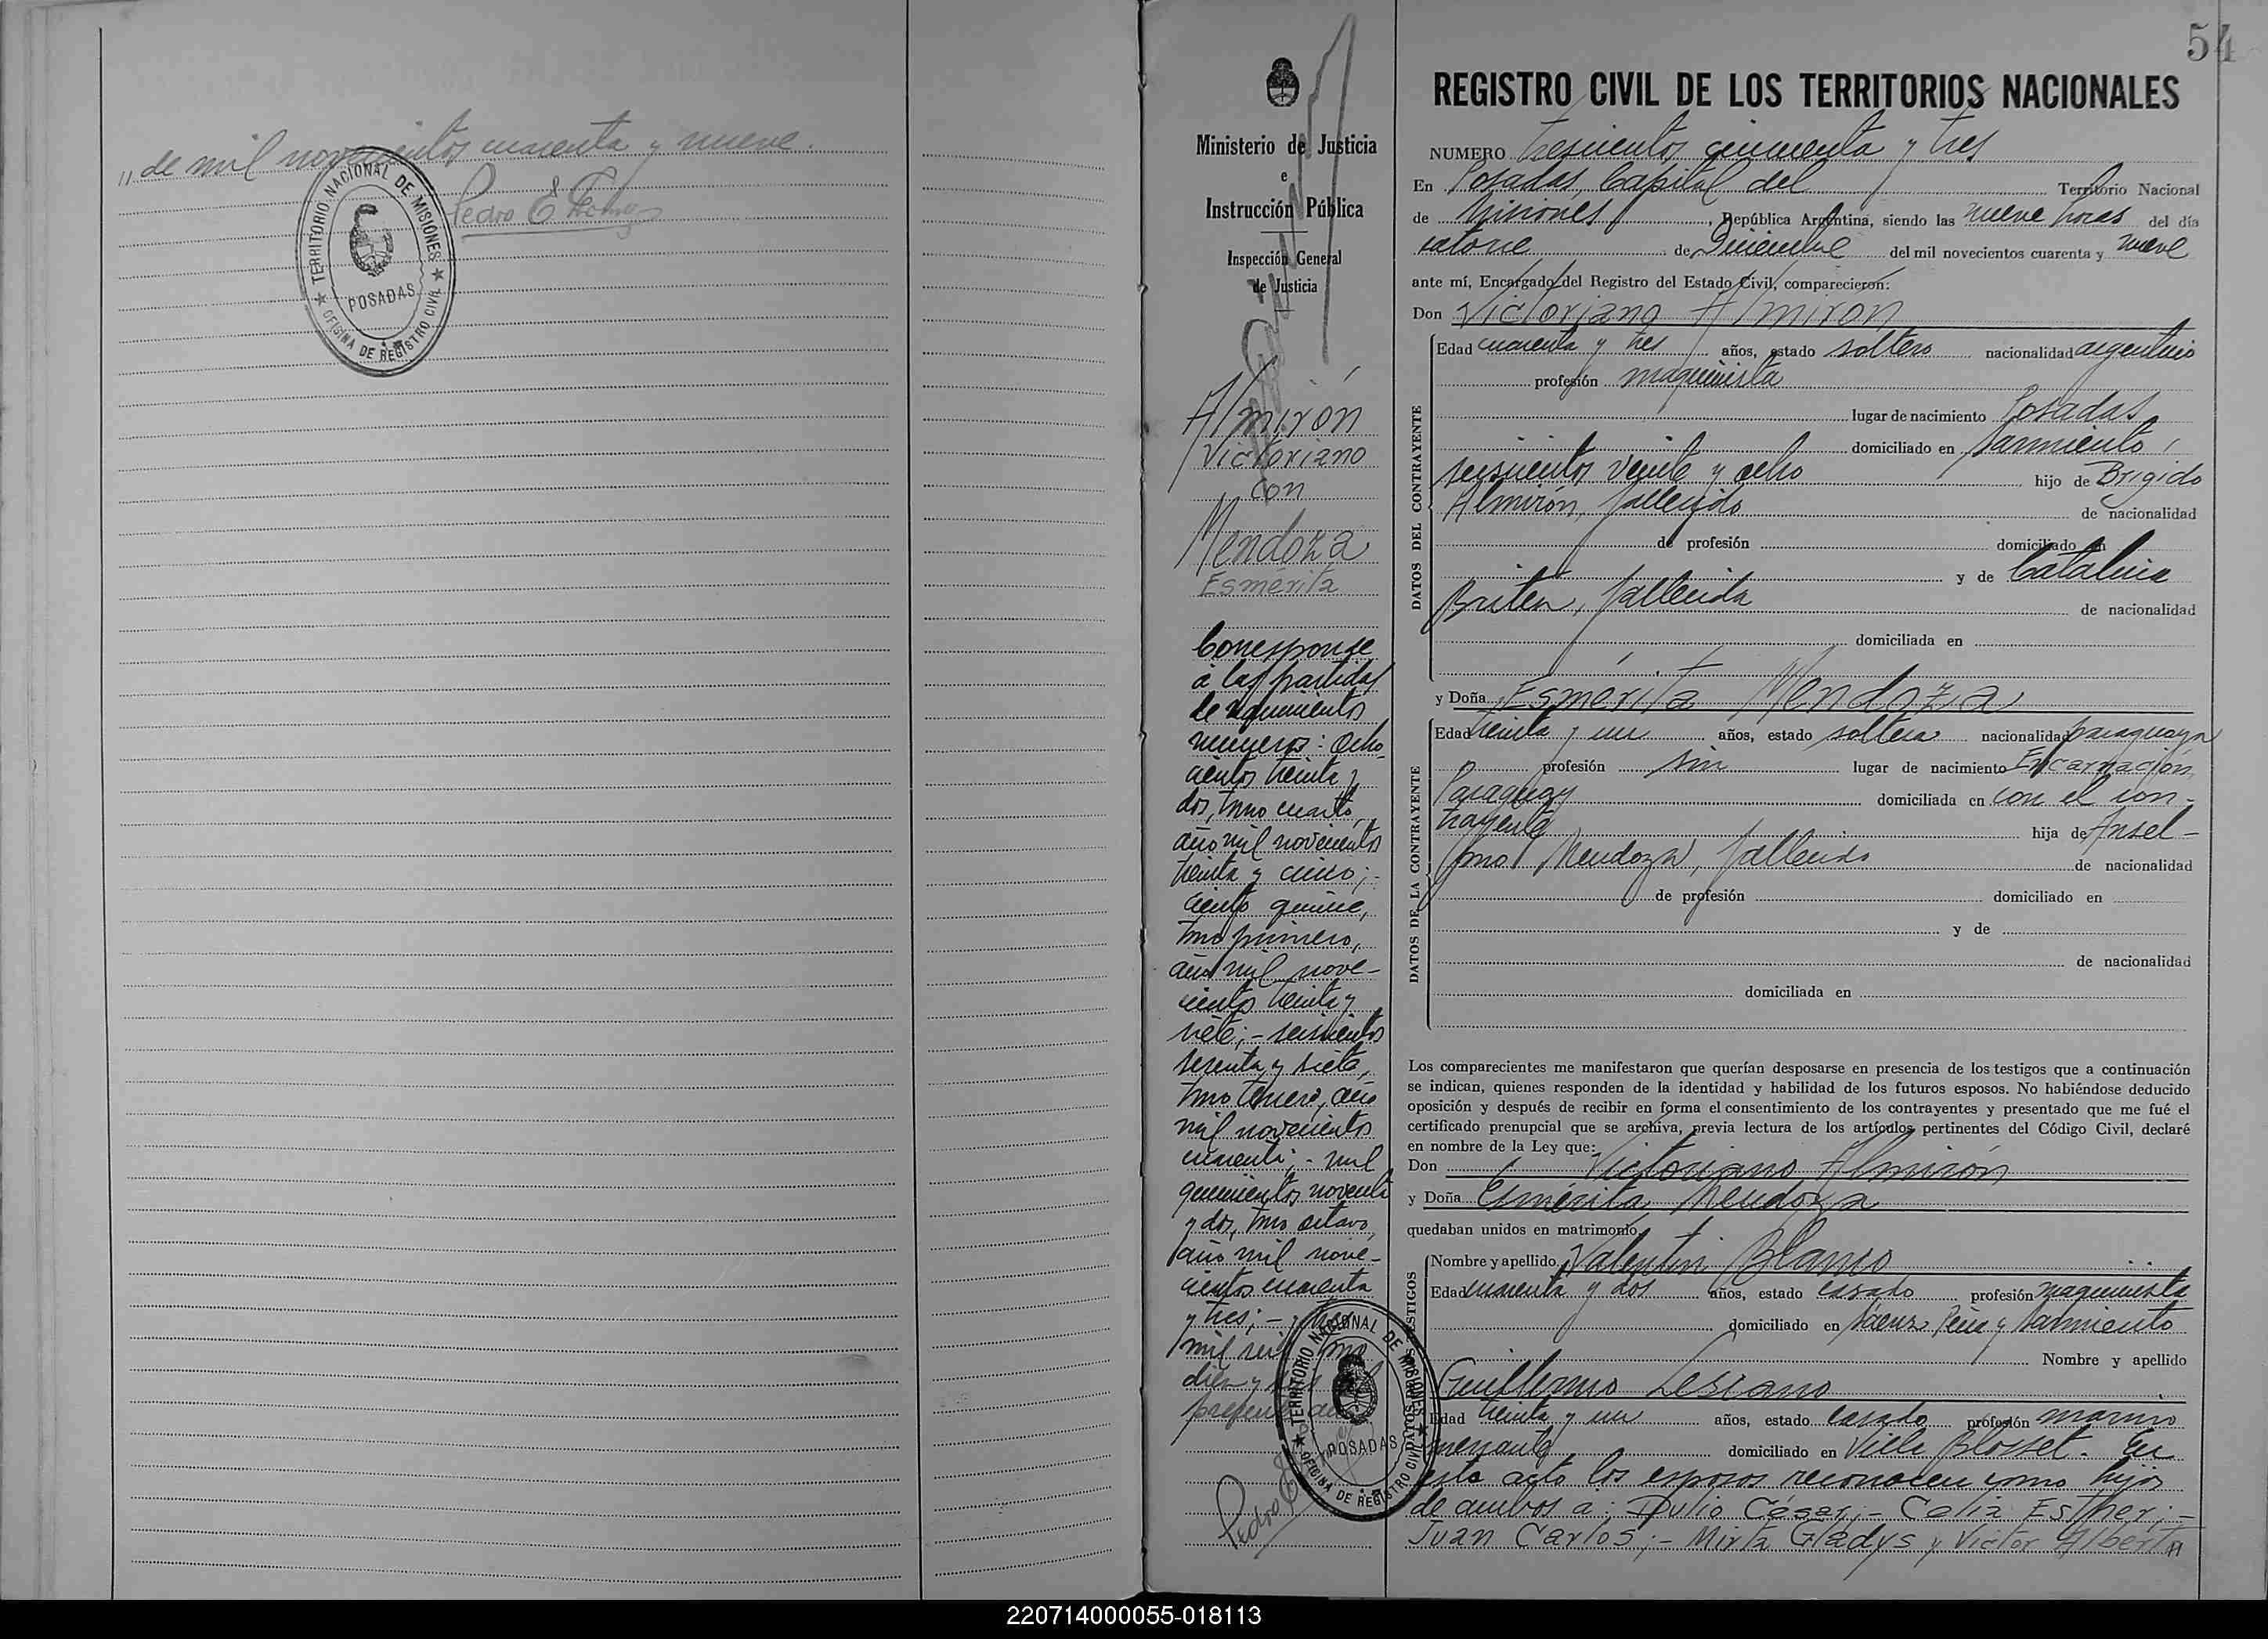 „ de mil novecientos cuarenta y nueve.
TERRITORIO NACIONAL DE MISIONES
POSADAS
OFICINA DE REGISTRO CIVIL
Pedro E
54
Ministerio de Justicia
e
Instrucción Pública
Inspección General
de Justicia
Almirón
Victoriano
con
Mendoza
Esmérita
Corresponde
a las partidas
de nacimientos
numeros: ocho-
cientos treinta y
dos, tmo cuarto,
año mil novecientos
treinta y cinco;-
ciento quince,
tmo primero,
año mil nove-
cientos treinta y
siete;- seiscientos
sesenta y siete,
tmo tercero, año
mil novecientos
cuarenta;- mil
quinientos noventa
y dos, tmo octavo,
año mil nove-
cientos cuarenta
y tres;- y
mil seis tmo
diez y
Pedro E
TERRITORIO NACIONAL DE MISIONES
POSADAS
OFICINA DE REGISTRO CIVIL
REGISTRO CIVIL DE LOS TERRITORIOS NACIONALES
NUMERO Trescientos cincuenta y tres
En Posadas, Capital del Territorio Nacional
de Misiones, República Argentina, siendo las nueve horas del día
catorce de Diciembre del mil novecientos cuarenta y nueve
ante mí, Encargado del Registro del Estado Civil, comparecieron:
Don Victoriano Almirón
DATOS DEL CONTRAYENTE
Edad cuarenta y tres años, estado soltero nacionalidad argentino
profesión maquinista
lugar de nacimiento Posadas
domiciliado en Sarmiento,
seiscientos veinte y ocho hijo de Brígido
Almirón, fallecido de nacionalidad
de profesión domiciliado en
y de Catalina
Britez, fallecida de nacionalidad
domiciliada en
y Doña Esmérita Mendoza
DATOS DE LA CONTRAYENTE
Edad treinta y un años, estado soltera nacionalidad paraguaya
profesión sin lugar de nacimiento Encarnación,
Paraguay domiciliada en con el con-
trayente hija de Ansel-
mo Mendoza, fallecido de nacionalidad
de profesión domiciliado en
y de
de nacionalidad
domiciliada en
Los comparecientes me manifestaron que querían desposarse en presencia de los testigos que a continuación
se indican, quienes responden de la identidad y habilidad de los futuros esposos. No habiéndose deducido
oposición y después de recibir en forma el consentimiento de los contrayentes y presentado que me fué el
certificado prenupcial que se archiva, previa lectura de los artículos pertinentes del Código Civil, declaré
en nombre de la Ley que:
Don Victoriano Almirón
y Doña Esmérita Mendoza
quedaban unidos en matrimonio.
DATOS DE LOS TESTIGOS
Nombre y apellido Valentin Blanco
Edad cuarenta y dos años, estado casado profesión maquinista
domiciliado en Sáenz Peña y Sarmiento
Nombre y apellido
Guillermo Lescano
Edad treinta y un años, estado casado profesión marino
mercante domiciliado en Villa Blosset. En
este acto los esposos reconocen como hijos
de ambos a: Dulio César;- Celia Esther;-
Juan Carlos;- Mirta Gladys y Víctor Alberto
220714000055-018113